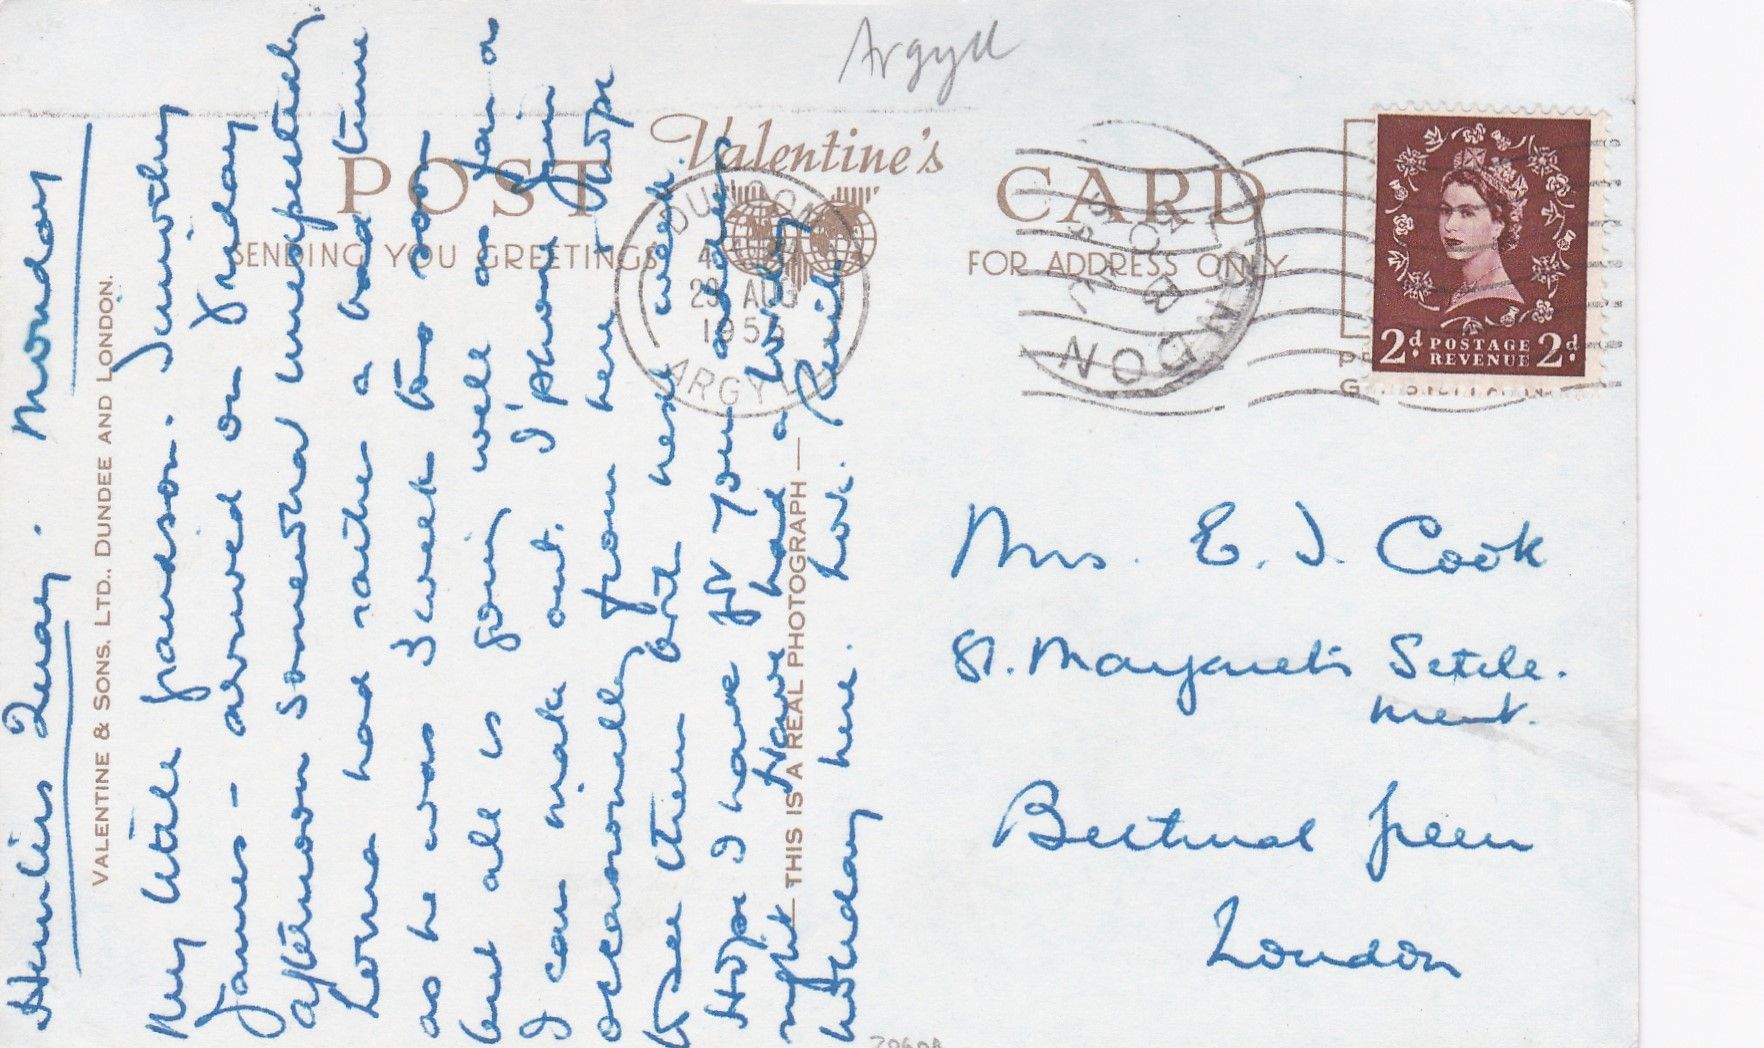 Argyll
Valentine's
POST CARD
SENDING YOU GREETINGS
FOR ADDRESS ONLY
DUNOON
29 AUG
1955
ARGYLL
LONDON
2d POSTAGE 2d
REVENUE
VALENTINE & SONS. LTD., DUNDEE AND LONDON.
THIS IS A REAL PHOTOGRAPH
Hunters Quay. Monday
My little grandson. Timothy
James - arrived on Friday
afternoon somewhat unexpectedly
Lorna had rather a bad time
as he was 3 weeks too soon
but all is going well as far as
I can make out. I 'phone Jim
occasionally from here & hope
to see them both next week.
Hope I have got your address
right & have had a lovely
holiday here. Love.
Mrs. E. J. Cook
St. Margaret's Settle.
ment.
Bethnal Green
London